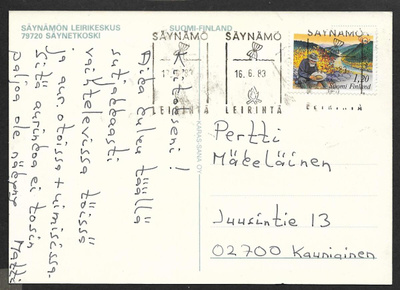 SÄYNÄMÖN LEIRIKESKUS
79720 SÄYNETKOSKI
SUOMI-FINLAND
SÄYNÄMÖ
16.6.83
LEIRINTÄ
SÄYNÄMÖ
16.6.83
LEIRINTÄ
SÄYNÄMÖ
LEIRINTÄ
1,20
Suomi Finland
Aika kuluu täällä
vaihtelevissa töissä
ja aur.otoissa + uimisissa.
Sitä aurinkoa ei tosin
paljoa ole näkynyt
Matti
Pertti
Mäteläinen
Juusintie 13
02700 Kauniainen